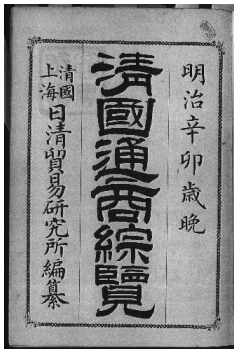 明治辛卯歳晩
清國通商綜覧
清國
上海
日清貿易研究所編纂